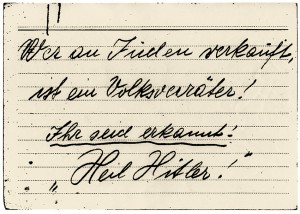 Wer an Juden verkauft,
ist ein Volksverräter!
Ihr seid erkannt!
Heil Hitler!